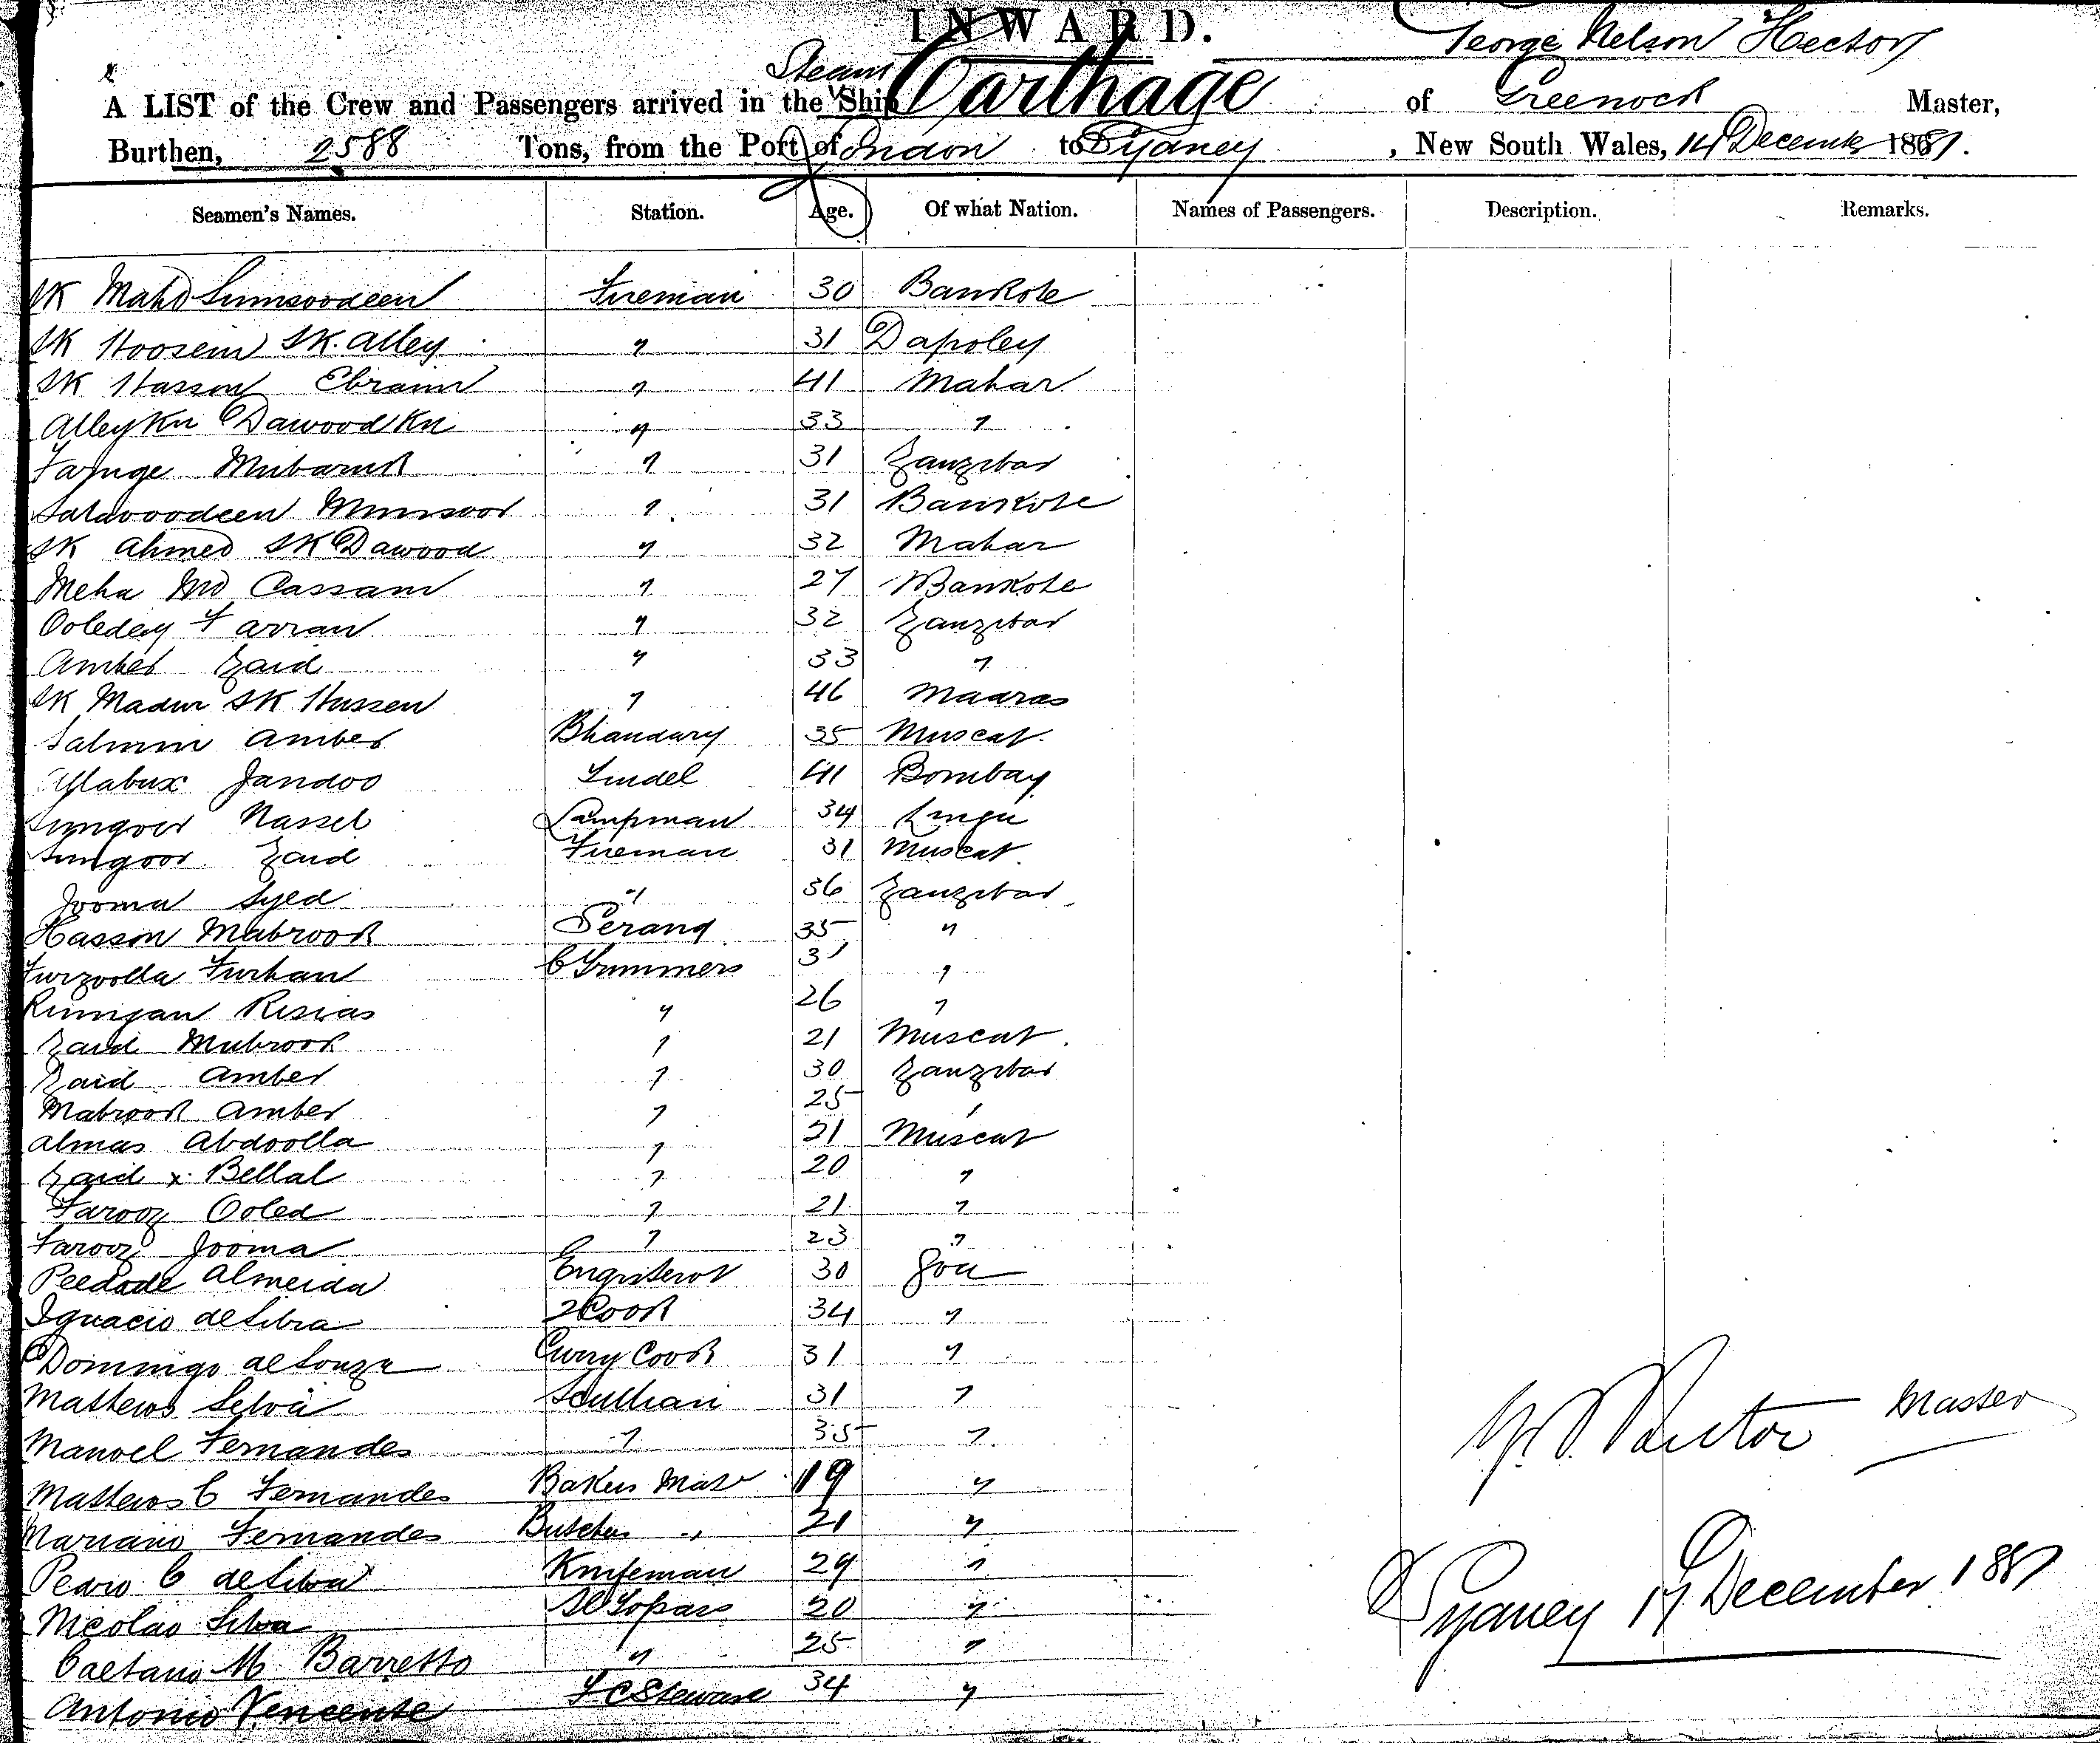 INWARD.
George Nelson Hector
A LIST of the Crew and Passengers arrived in the Steam Ship Carthage of Greenock Master,
Burthen, 2588 Tons, from the Port of London to Sydney, New South Wales, 14 December 1881.
Seamen's Names. Station. Age. Of what Nation. Names of Passengers. Description. Remarks.
SK Mahd Sumsoodeen Fireman 30 Bankote
SK Hoosein SK. Alley " 31 Dapoley
SK Hasson Ebraim " 41 Mahar
Alley Kn Dawood Kn " 33 "
Mubaruk " 31 Zanzibar
Munsoor " 31 Bankote
SK Ahmed SK Dawood " 32 Mahar
Meha Md Cassam " 27 Bankote
Ooleday Farran " 32 Zanzibar
Amber Zaid " 33 "
SK Madur SK Hussen " 46 Madras
Salmin Amber Bhandary 35 Muscat.
Jandoo Tindel 41 Bombay
Nassel Lampman 34
Sungoor Zaid Fireman 31 Muscat
Jooma Syed " 36 Zanzibar
Hassin Mabrook Serang 35 "
Furzoolla Furhan C Trimmers 31 "
Rumjan " 26 "
Zaid Mubrook " 21 Muscat.
Zaid Amber " 30 Zanzibar
Mabrook Amber " 25 "
Almas Abdoolla " 21 Muscat
Zaid x Bellal " 20 "
Farooz Ooled " 21 "
Farooz Jooma " 23 "
Peedade Almeida 30 Goa
Ignacio de Silva 2 Cook 34 "
Domingo de Souza Curry Cook 31 "
Mathews Selva Scullian 31 "
Manoel Fernandes " 35 "
Mathews C Fernandes Bakers Mate 19 "
Mariano Fernandes Butchers " 21 "
Pedro C de Silva Knifeman 29 "
Nicolao Silva Topass 20 "
Caetano M Barretto " 25 "
Antonio Vencente Steward 34 "
Master
Sydney 17 December 1881